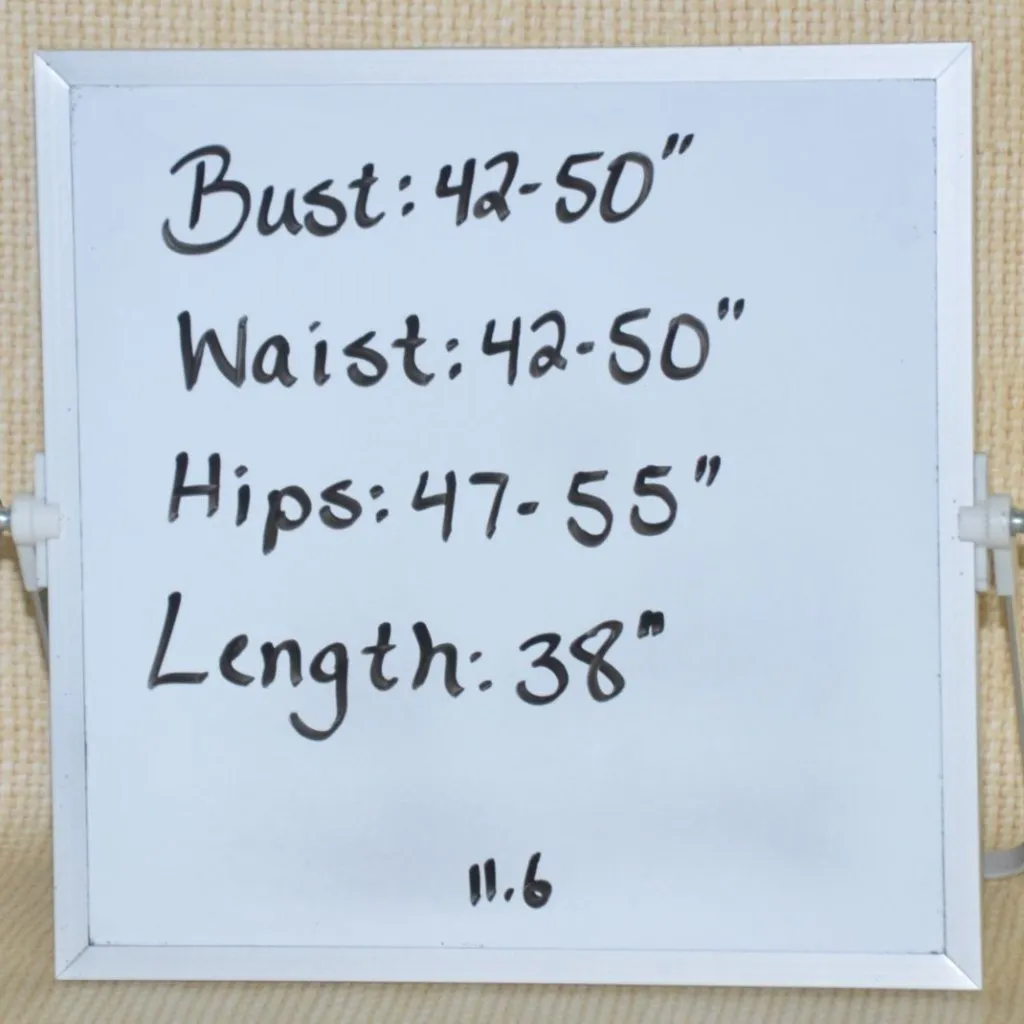 Bust: 42-50"
Waist: 42-50"
Hips: 47-55"
Length: 38"
11.6